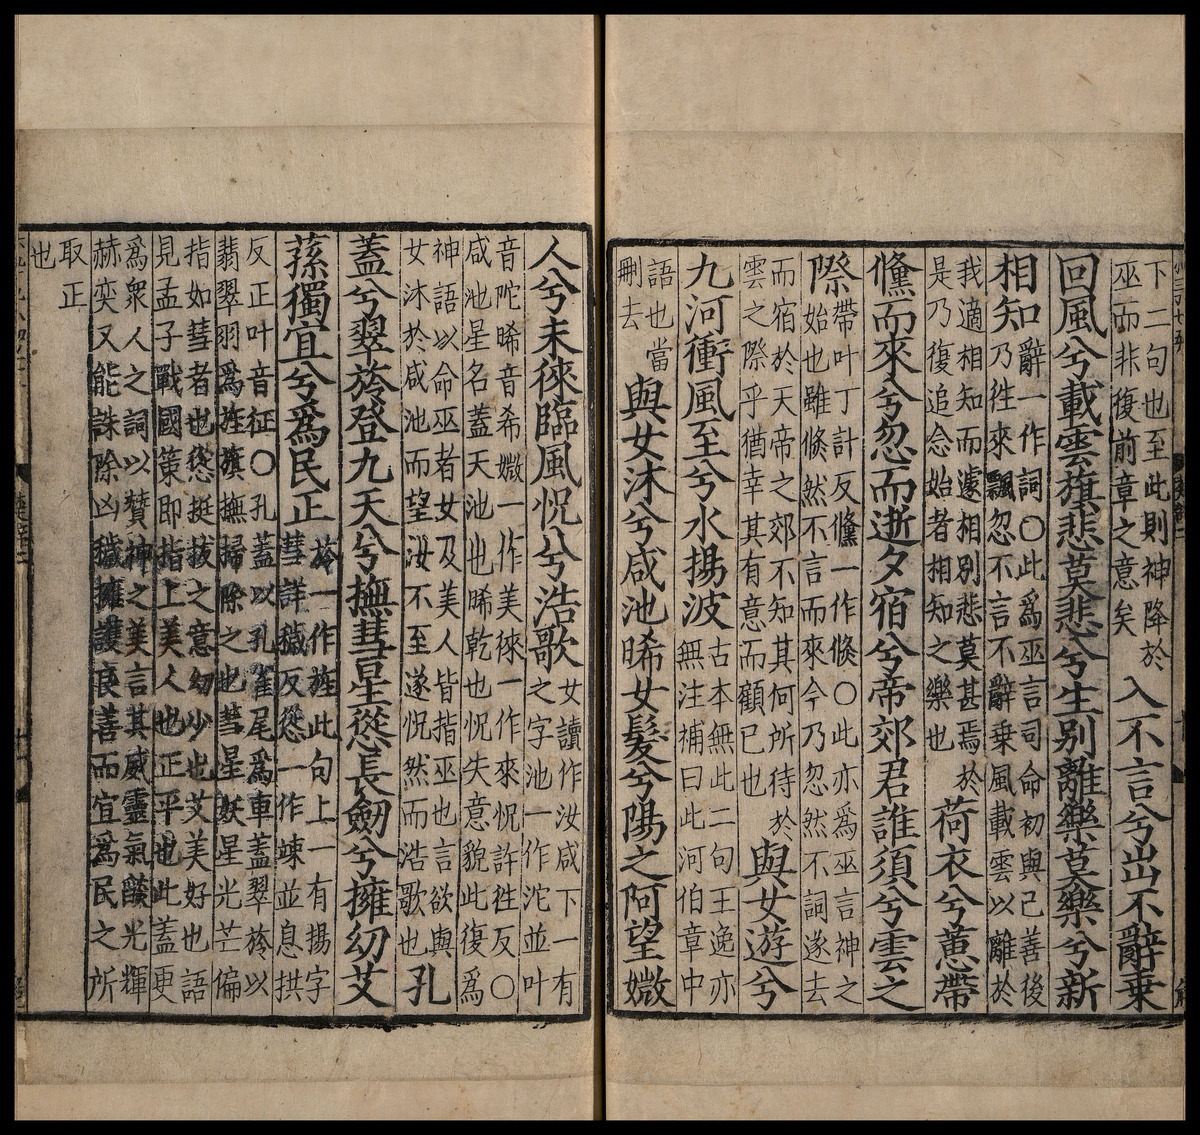 下二句也至此則神降於
巫而非復前章之意矣
入不言兮出不辭乗
回風兮載雲旗悲莫悲兮生别離樂莫樂兮新
相知
辭一作詞○此爲巫言司命初與己善後
乃徃來飄忽不言不辭乗風載雲以離於
我適相知而遽相别悲莫甚焉於
是乃復追念始者相知之樂也
荷衣兮蕙帶
儵而來兮忽而逝夕宿兮帝郊君誰須兮雲之
際
帶叶丁計反儵一作倐○此亦爲巫言神之
始也雖倐然不言而來今乃忽然不詞遂去
而宿於天帝之郊不知其何所待於
雲之際乎猶幸其有意而顧已也
與女遊兮
九河衝風至兮水揚波
古本無此二句王逸亦
無注補曰此河伯章中
語也當
刪去
與女沐兮咸池晞女髮兮陽之阿望媺
人兮未徠臨風怳兮浩歌
女讀作汝咸下一有
之字池一作沱並叶
音陀晞音希媺一作美徠一作來怳許徃反○
咸池星名蓋天池也晞乾也怳失意貌此復爲
神語以命巫者女及美人皆指巫也言欲與
女沐於咸池而望汝不至遂怳然而浩歌也
孔
蓋兮翠旍登九天兮撫彗星慫長劒兮擁幼艾
蓀獨宜兮爲民正
旍一作旌此句上一有揚字
彗詳穢反慫一作竦並息拱
反正叶音征○孔蓋以孔雀尾爲車蓋翠旍以
翡翠羽爲旌旗撫掃除之也彗星妖星光芒偏
指如彗者也慫挺拔之意幼少也艾美好也語
見孟子戰國策即指上美人也正平也此蓋更
爲衆人之詞以賛神之美言其威靈氣燄光輝
赫奕又能誅除凶穢擁護良善而宜爲民之所
取正
也